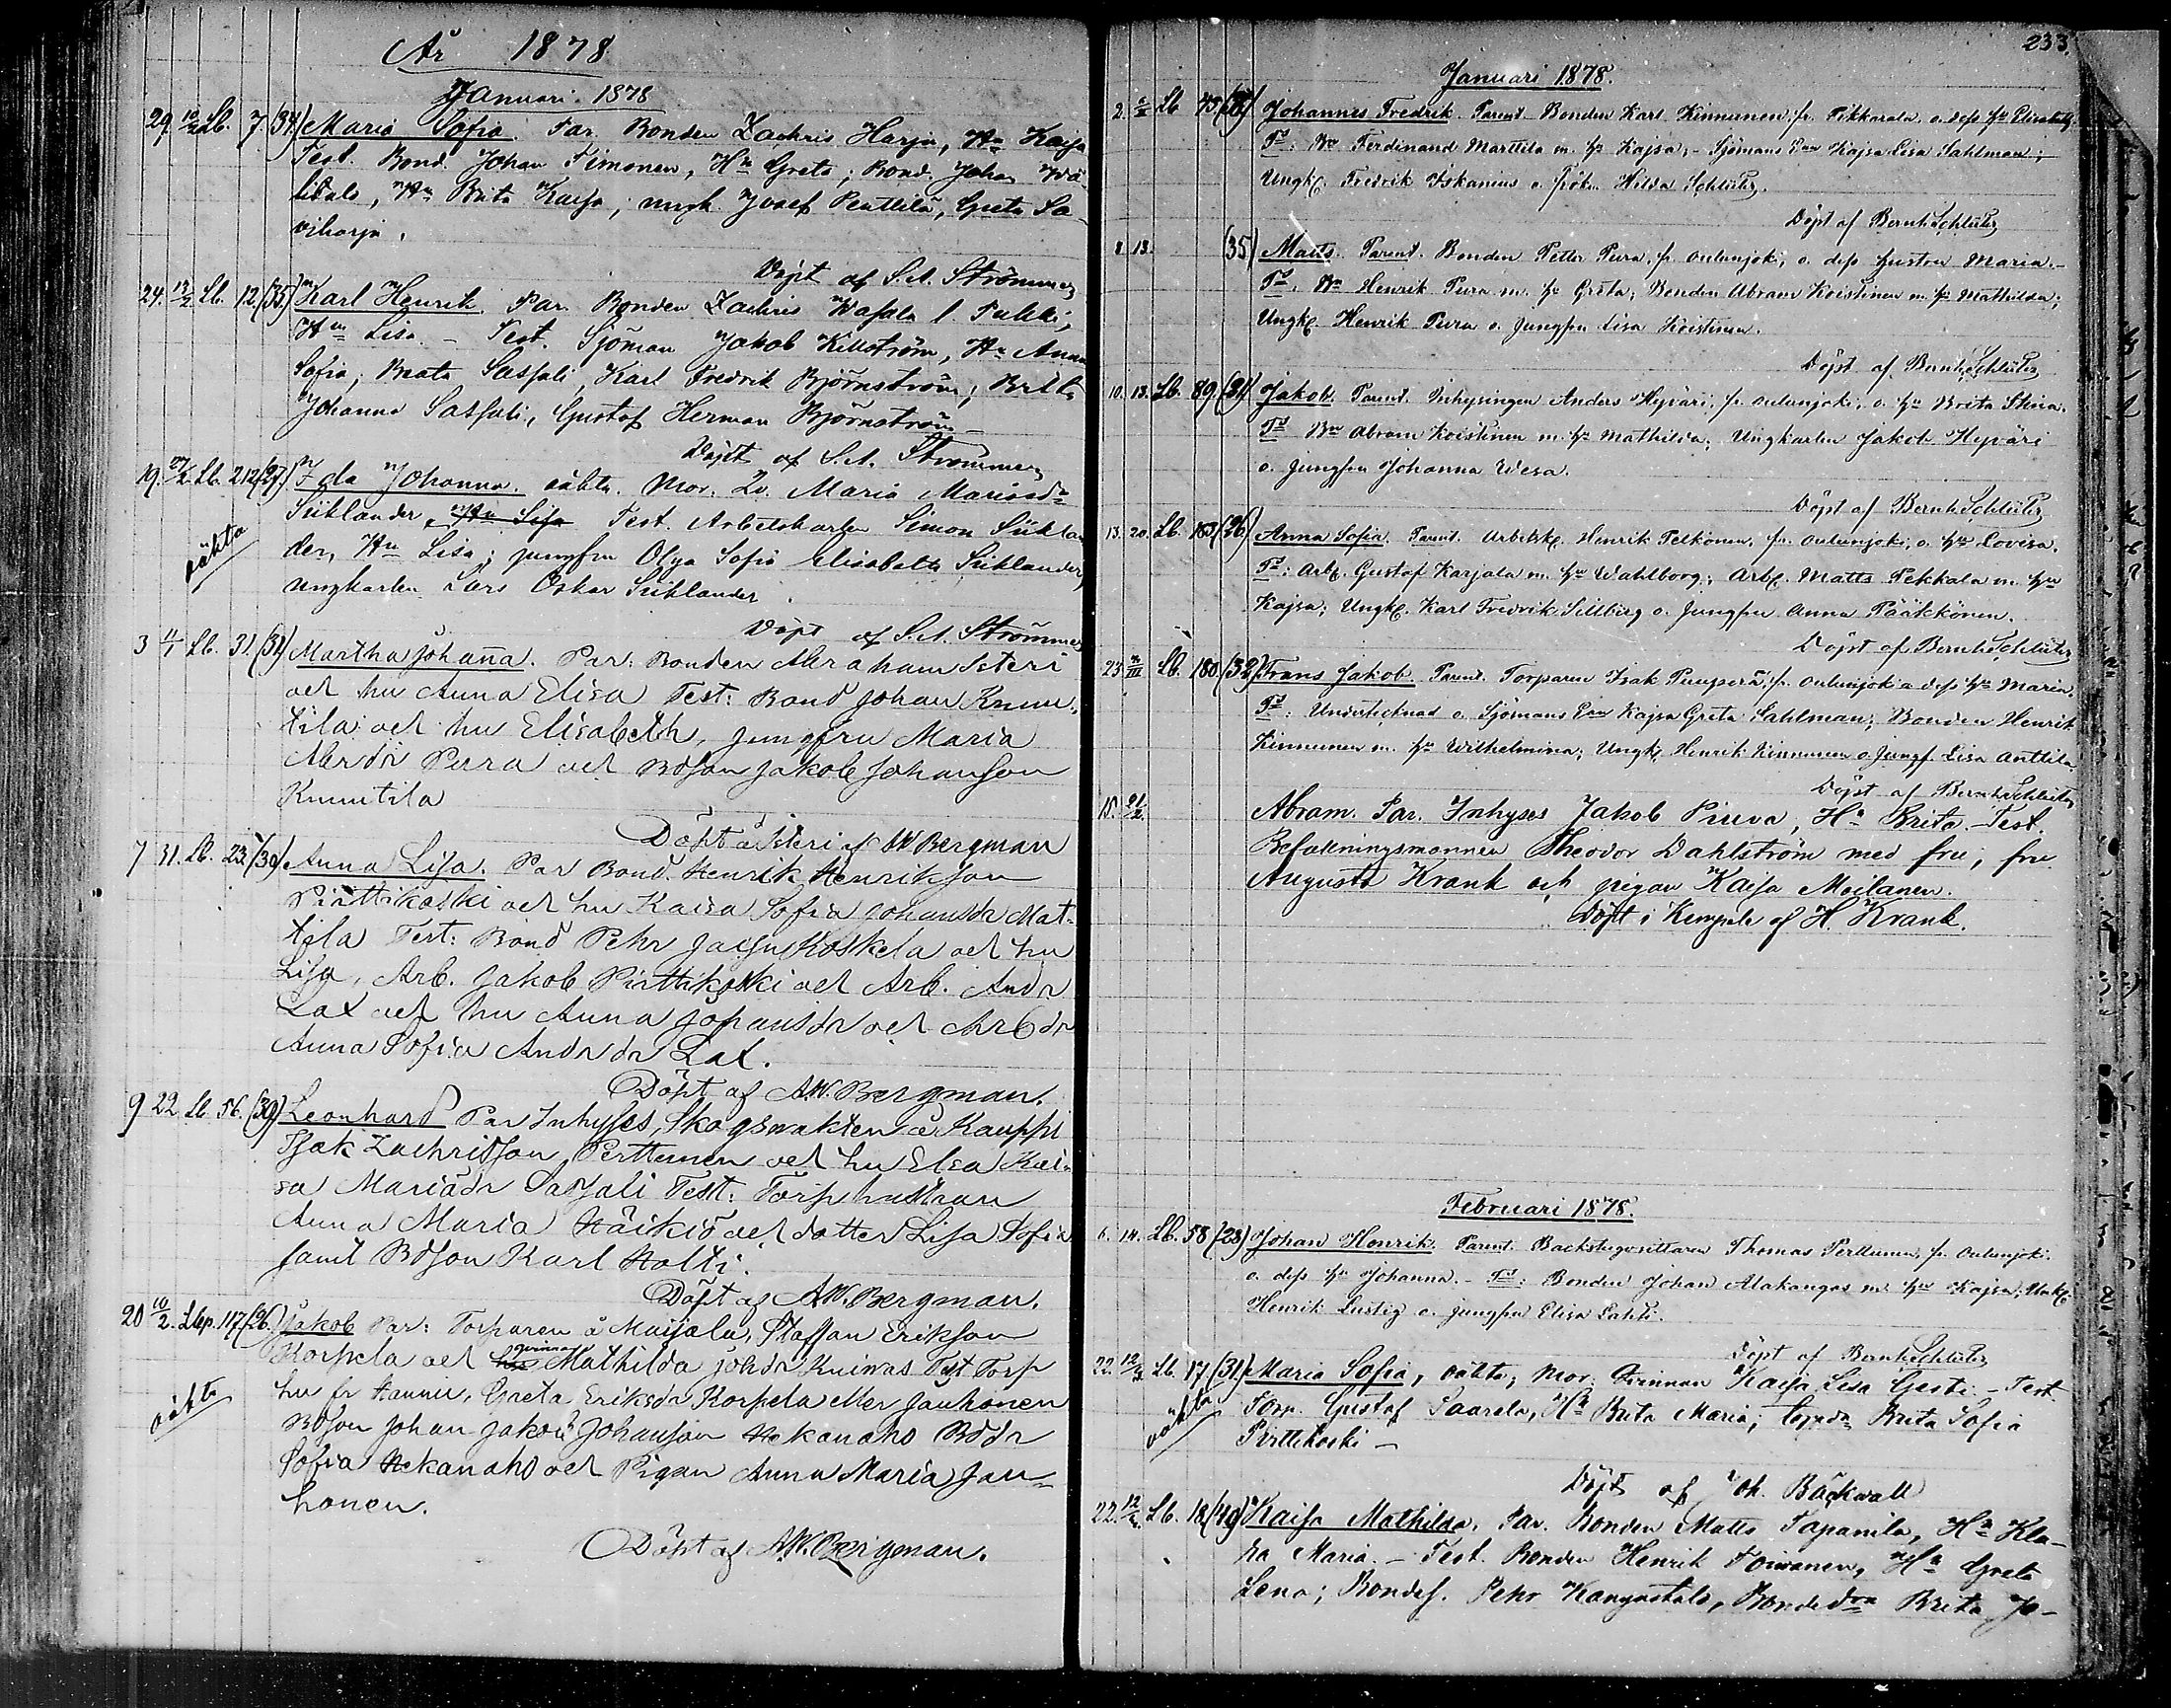 År 1878
Januari. 1878
29. 10/2 Lb. 7. (34.) Maria Sofia. Par. Bonden Zachris Harju, Hu Kaisa
Test. Bond. Johan Timonen, Hu Greta; Bond. Johan
Hu Brita Kaisa; ungk. Josef Penttilä, Greta Sa-
viharju.
Döpt af S.A. Strömmer
24. 13/2 Lb. 12. (35) Karl Henrik. Par. Bonden Zachris Wasala l. Pukki,
Hu Lisa. – Test. Sjöman Jakob Killström, Hu Anna
Sofia; Beata Sassali, Karl Fredrik Björnström; Brita
Johanna Sassali, Gustaf Herman Björnström –
Döpt af S.A. Strömmer
19. 27/2 Lb. 212 (27.) Ida Johanna. oäkta. Mor. Qv. Maria Mariedr
Siiklander, Hu Lisa Test. Arbetskarlen Simon Siiklan
der, Hu Lisa; jungfru Olga Sofia Elisabeth Siiklander,
oäkta
ungkarlen Lars Oskar Siiklander.
Döpt af S.A. Strömmer
3 4/1 Lb. 31. (31) Martha Johanna. Par: Bonden Abraham Isteri
och hu Anna Elisa Test: Bond Johan Knuu-
tila och hu Elisabeth, jungfru Maria
Abrdr Perra och Bdson Jakob Johanson
Knuutila
Döpt å Isteri af AW Bergman
7 31. Lb. 23. (30) Anna Lisa. Par Bond. Henrik Henrikson
Pirttikoski och hu Kaisa Sofia Johansdr Mat-
tila Test: Bond Pehr Koskela och hu
Lisa, Arb. Jakob Pirttikoski och Arb. Andr
Lax och hu Anna Johansdr och Arbdr
Anna Sofia Andr dr Lax.
Döpt af A.W. Bergman.
9 22 Lb. 56. (39) Leonhard Par Inhyses, Skogsvakten å Kauppi
Isak Zachrisson Perttunen och hu Elsa Kai-
sa Mariadr Sassali Test: Torp hustrun
Anna Maria Häikiö och dotter Lisa Sofia
samt Bdson Karl Holti.
Döpt af A.W. Bergman.
20 10/2. Lbp. 117 (26.) Jakob Par: Torparen å Maijala, Staffan Erikson
Korpela och hu qvinna Mathilda Johdr Kuiwas Test Torp
oäkta
hu fr Hannu, Greta Eriksdr Korpela eller Jauhonen
Bdson Johan Jakob Johanson Hekanaho Bddr
Sofia Hekanaho och Pigan Anna Maria Jau-
honen.
Döpt af A.W. Bergman.
233.
Januari 1878.
Johannes Fredrik. Parent. Bonden Karl Kinnunen, fr. Pikkarala, o. dess hu Elisabeth.
Tt: Bn Ferdinand Marttila m. hu Kajsa; – Sjömans Enn Kajsa Lisa Sahlman;
Ungk. Fredrik Iskanius o. frök. Hilda Schlüter.
Döpt af Bernh. Schlüter
8. 13. (35) Matts. Parent. Bonden Petter Pura, fr. Oulunjoki, o. dess hustru Maria. –
Tt. Bn Henrik Pura m. hu Greta; Bonden Abram Koistinen m. hu Mathilda;
Ungk. Henrik Pura o. Jungfru Lisa Koistinen.
Döpt af Bernh. Schlüter
10. 13. Lb. 89. (31) Jakob. Parent. Inhysingen Anders Hyväri, fr. Oulunjoki, o. hu Brita Stina.
Tt Bn Abram Koistinen m. hu Mathilda; Ungkarlen Jakob Hyväri
o. Jungfru Johanna Wesa.
Döpt af Bernh. Schlüter
13. 20. Lb. 163 (26) Anna Sofia. Parent. Arbetsk. Henrik Pelkonen, fr. Oulunjoki, o. hu Lovisa.
Tt: Arb. Gustaf Karjala m. hu Wahlborg; Arb. Matts Pekkala m. hu
Kajsa; Ungk. Karl Fredrik Sillberg o. Jungfru Anna Pääkkönen.
Döpt af Bernh. Schlüter
23 Lb. 180. (32) Frans Jakob. Parent. Torparen Isak Pumperä, fr. Oulunjoki o. dess hu Maria.
Tt: Undertecknad o. Sjömans Enn Kajsa Greta Sahlman; Bonden Henrik
Kinnunen m. hu Wilhelmina; Ungk. Henrik Kinnunen o. Jungf. Lisa Anttila.
Döpt af Bernh. Schlüter
15. 21/2. Abram. Par. Inhyses Jakob Piuva, Hu Brita. – Test.
Befallningsmannen Theodor Dahlström med fru; fru
Augusta Krank och pigan Kaisa Moilanen.
Döpt i Kempele af H. Krank.
Februari 1878.
6. 14. Lb. 58 (28) Johan Henrik. Parent. Backstugusittaren Thomas Perttunen, fr. Oulunjoki.
o. dess hu Johanna. – Tt: Bonden Johan Alakangas m. hu Kajsa; Ungk.
Henrik Lustig o. jungfru Elisa Lahti.
Döpt af Bernh. Schlüter
22. 12/3 Lb. 17 (31.) Maria Sofia, oäkta; Mor: Qvinnan Kaisa Lisa Gerti. – Test.
oäkta
Torp. Gustaf Saarela, Hu Brita Maria; Brita Sofia
Pirttikoski –
Döpt af Joh. Bäckwall
22. 12/2. Lb. 18 (40) Kaisa Mathilda. Par. Bonden Matts Tapanila, Hu Kla-
ra Maria. – Test. Bonden Henrik Toiwanen, Hu Greta
Lena; Bondes. Pehr Kangastalo, Bondedrn Brita Jo-